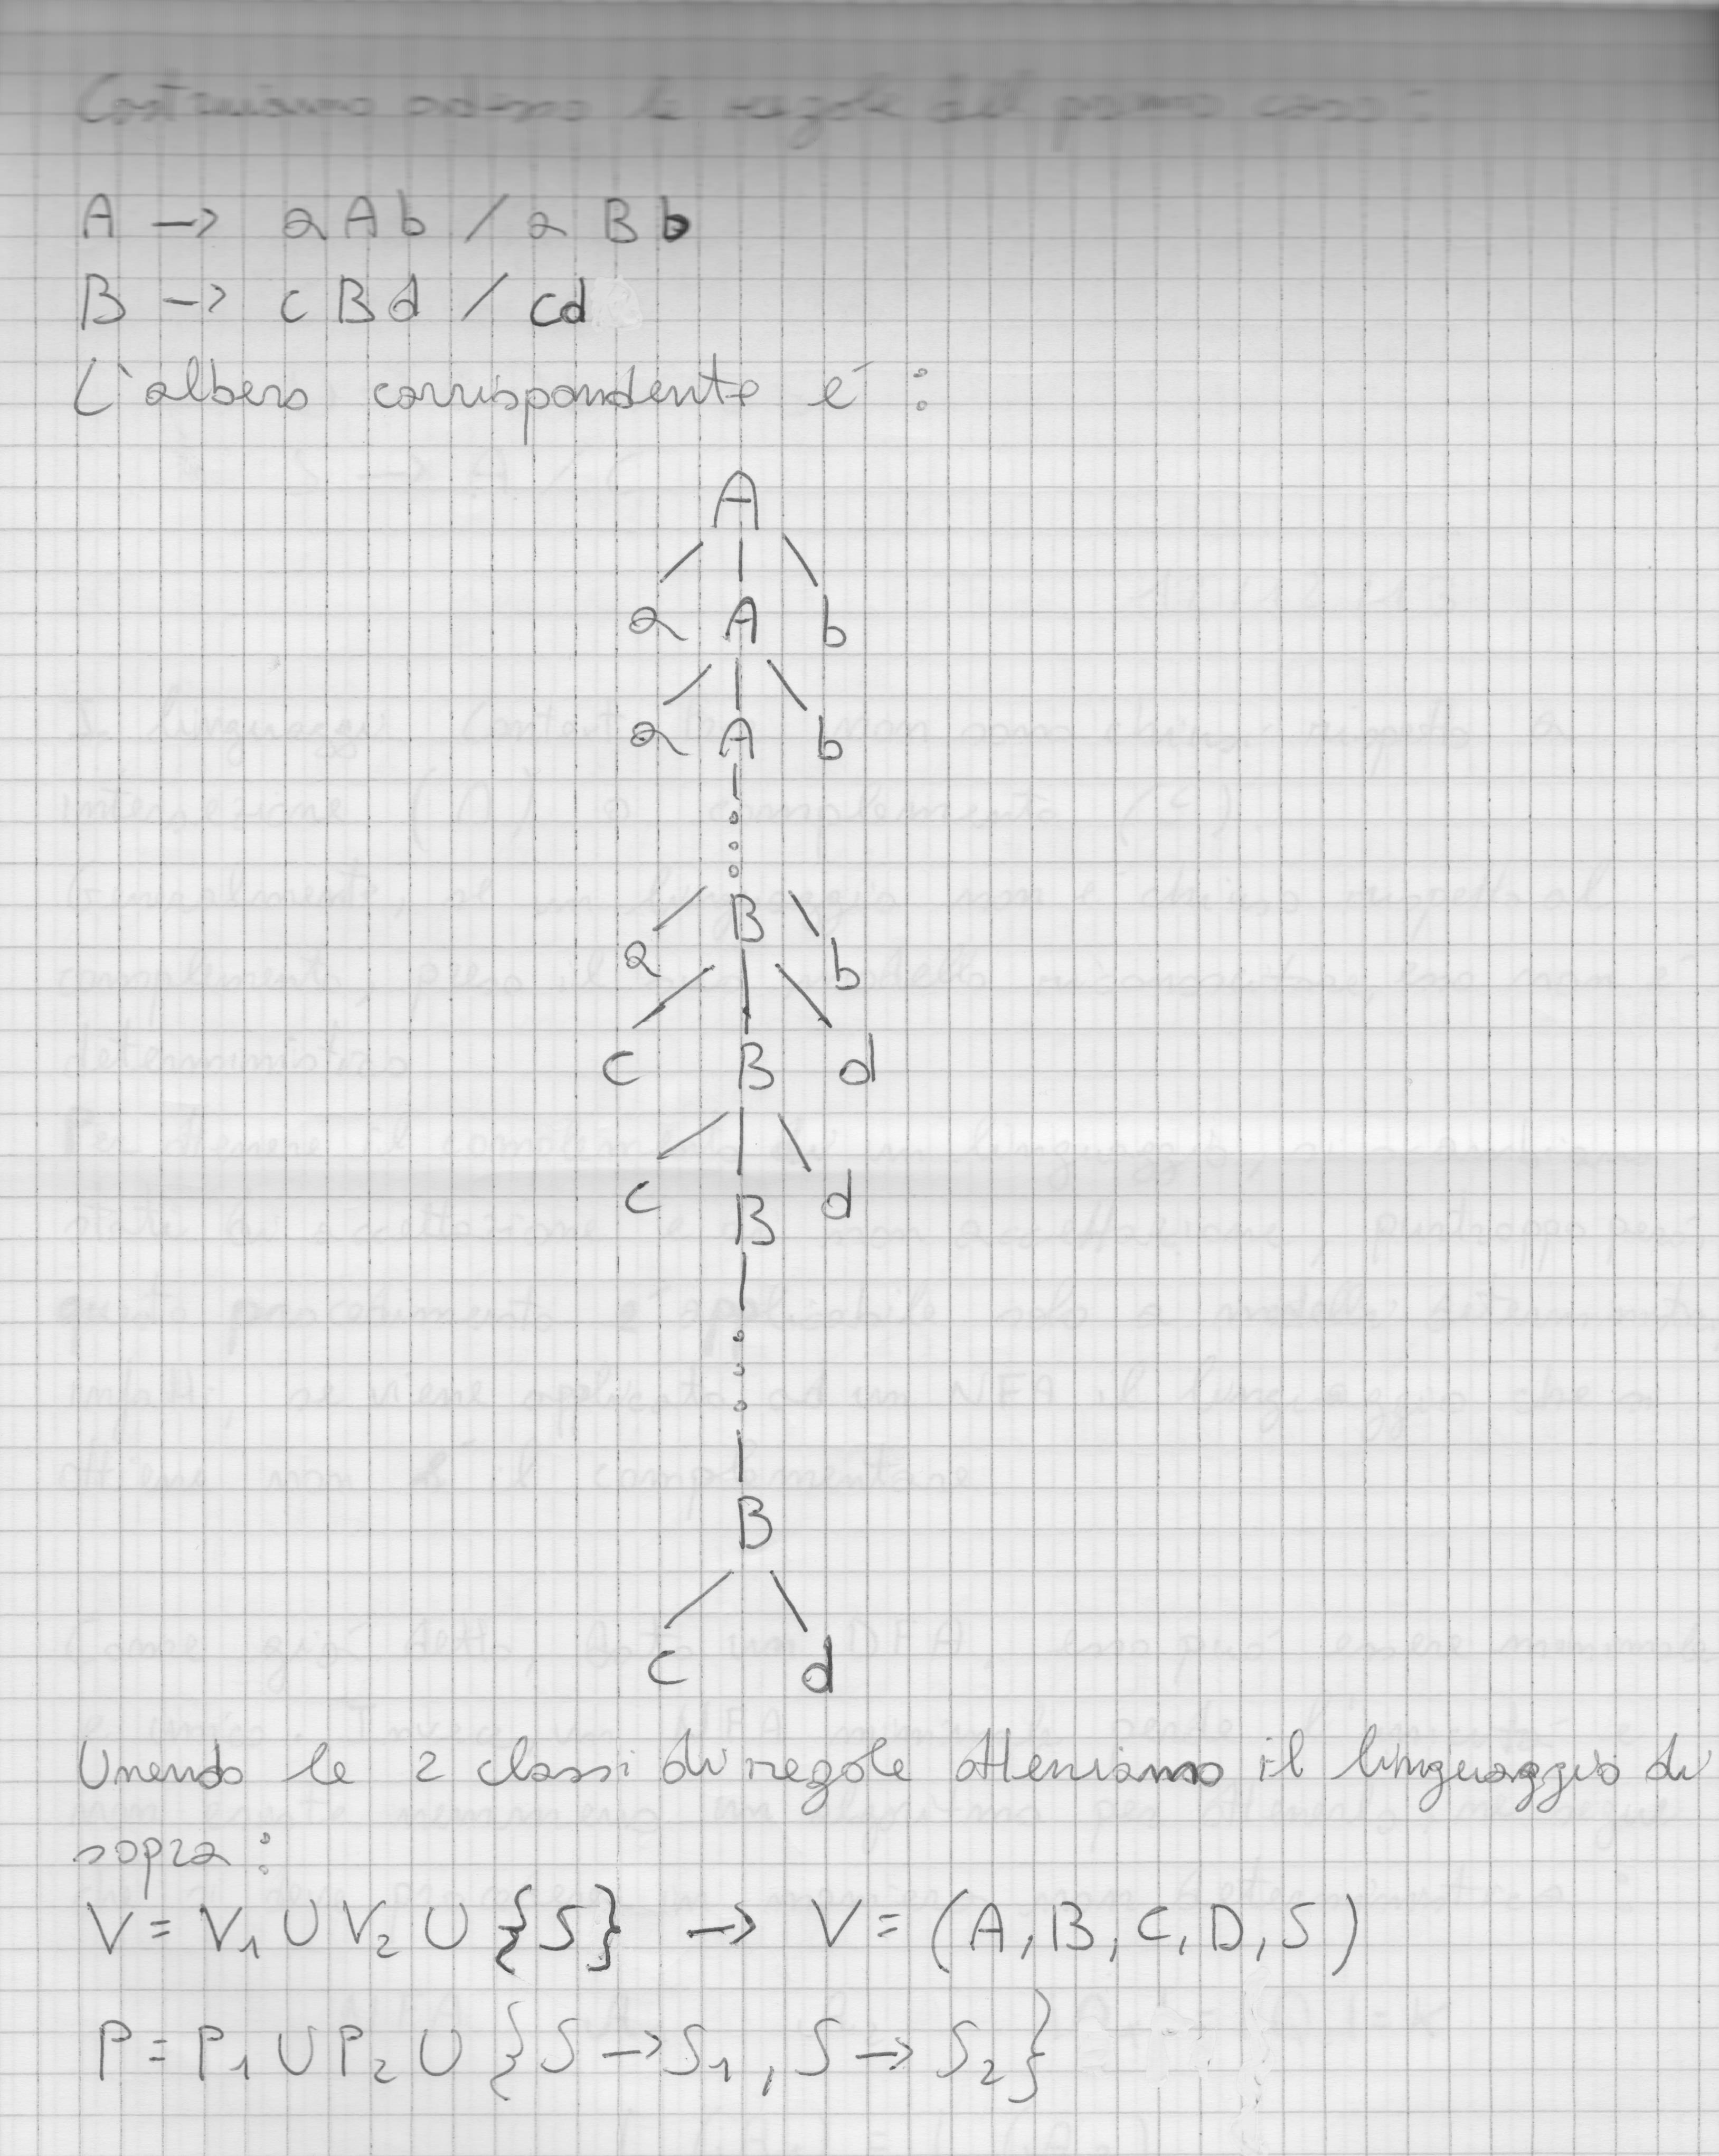 Costruiamo adesso le regole del primo caso:
A → aAb / aBb
B → cBd / cd
L'albero corrispondente é:
A
a A b
a A b
B
a b
c B d
c B d
B
c d
Unendo le 2 classi di regole otteniamo il linguaggio di
sopra:
V = V₁ ∪ V₂ ∪ {S} → V = (A, B, C, D, S)
P = P₁ ∪ P₂ ∪ {S → S₁, S → S₂}